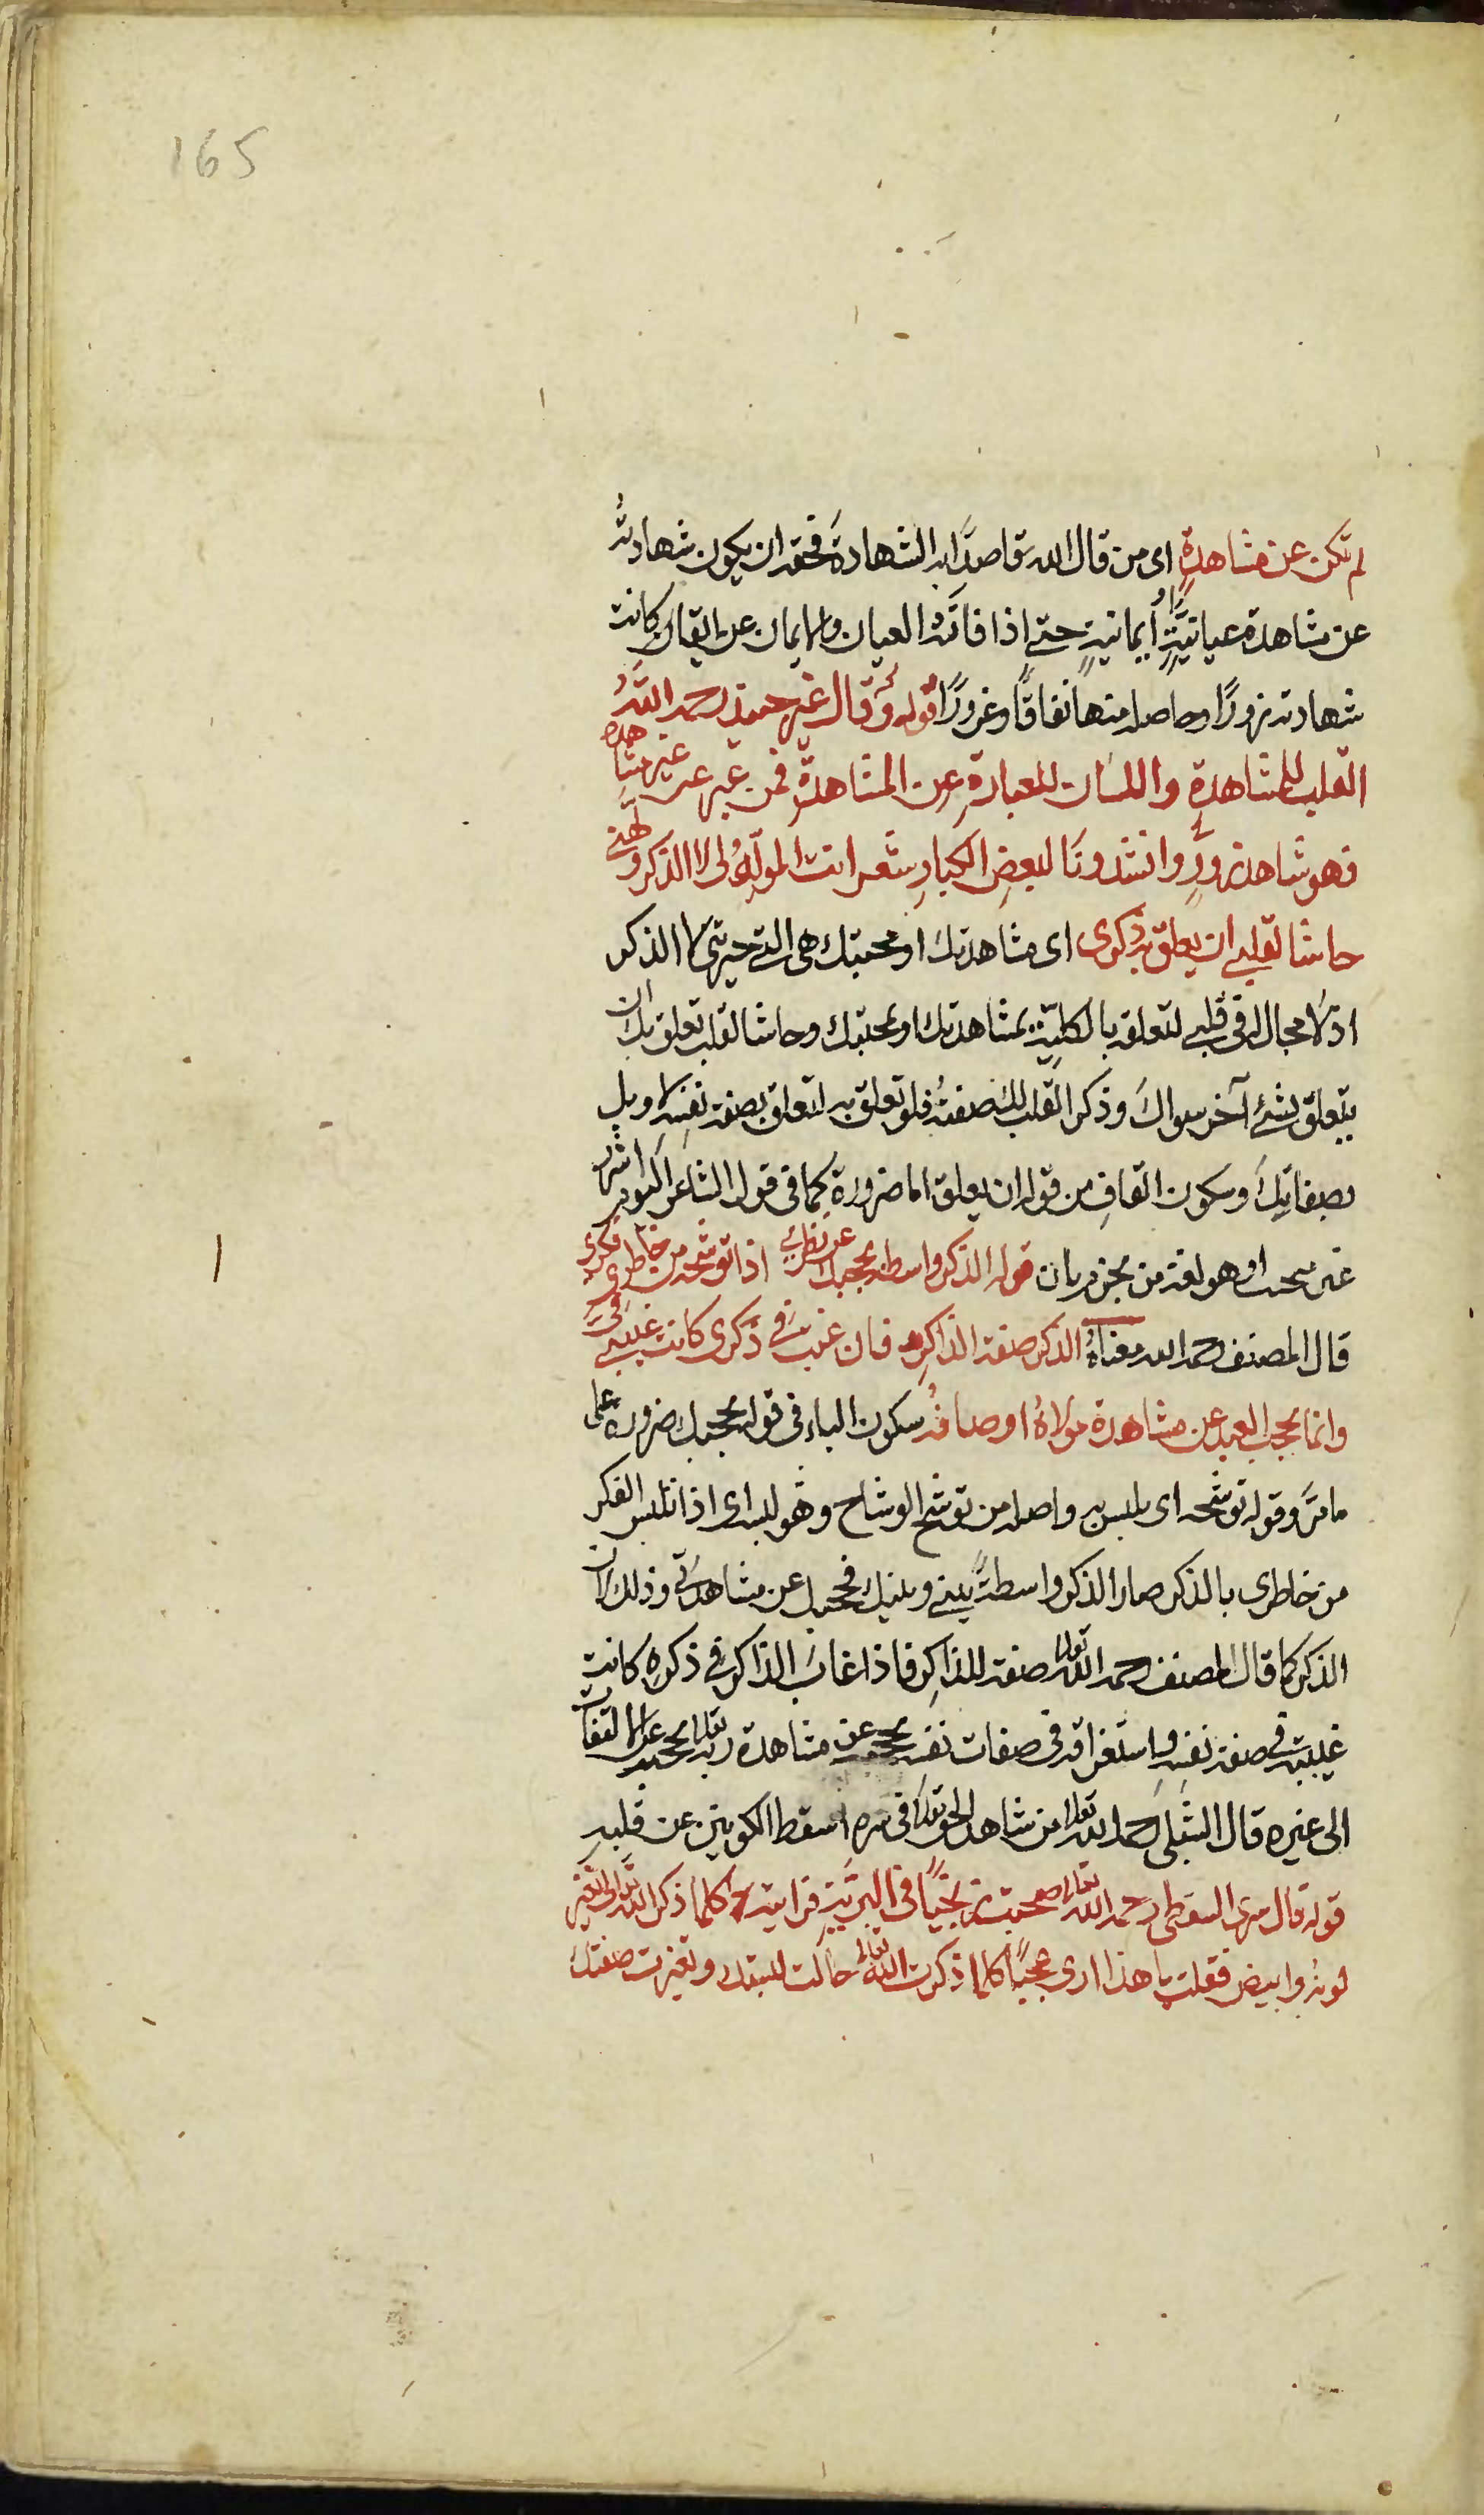 165
لم تكن عن مشاهدةٍ اى من قال الله قاصدًا به الشهادة فحقه ان يكون شهادته
عن مشاهدة عيانيةٍ او ايمانيةٍ حتى اذا فاته العيان والايمان عن ايقان كانت
شهادته زورًا وحاصله منها نفاقًا وغرورًا قوله وقال غيره رحمه الله
القلب للمشاهدةِ واللسان للعبارةِ عن المشاهدة فمن عبر عن غير مشاهدة
فهو شاهد زورٍ وانشدونا لبعض الكبارِ شعر انت المولّهُ لى لا الذكر ولّهنى
حاشا لقلبى ان يعلق به ذكرى اى مشاهدتك او محبتك هى التى حيرتنى لا الذكر
اذ لا مجال له فى قلبى لتعلقه بالكلية بمشاهدتك او بمحبتك وحاشا لقلب تعلق بك ان
يتعلق بشئ آخر سواك وذكر القلب لك صفته فلو تعلق به لتعلق بصفة نفسه لا بل
بصفاتك وسكون القافِ من قوله ان يعلق اما ضرورة كما فى قول الشاعر اليوم اشرب
غير مستحقب او هو لغة من قوله الذكر واسطة يحجبك عن نظرى اذا توشحه من خاطرى فكرى
قال المصنف رحمه الله معناهُ الذكر صفة الذاكر فان غبت فى ذكرى كانت غيبتى فىّ
وانما يحجب العبد عن مشاهدة مولاهُ اوصافه سكون الباء فى قوله يحجبك ضرورة على
ما مرّ وقوله توشحه اى تلبس به واصله من توشح الوشاح وهو لبسه اى اذا تلبس الفكر
من خاطرى بالذكر صار الذكر واسطةً بينى وبينك فحجبك عن مشاهدتى وذلك لان
الذكر كما قال المصنف رحمه الله تعالى صفة للذاكر فاذا غاب الذاكر فى ذكره كانت
غيبته فى صفة نفسه واستغراقه فى صفات نفسه يحجبه عن مشاهدة ربه تعالى عن الالتفات
الى غيره قال الشبلى رحمه الله تعالى من شاهد الحق تعالى فى سره اسقط الكونين عن قلبه
قوله قال سرى السقطى رحمه الله تعالى صحبت زنجيًا فى البرية فرايته كلما ذكر الله تعالى تغير
لونه وابيض فقلت يا هذا ارى عجبًا كلما ذكرت الله تعالى حالت لبستك وتغيرت صفتك